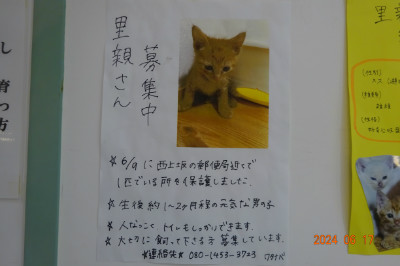 里親さん
募集中
☆6/9に西上坂の郵便局近くで
1匹でいる所を保護しました。
☆生後約1~2ヶ月程の元気な男の子
☆人なつこく トイレもしっかりできます。
☆大切に飼って下さる方募集しています。
☆連絡先☆ 080-1453-3723
し
育
つ
方
里親
2024